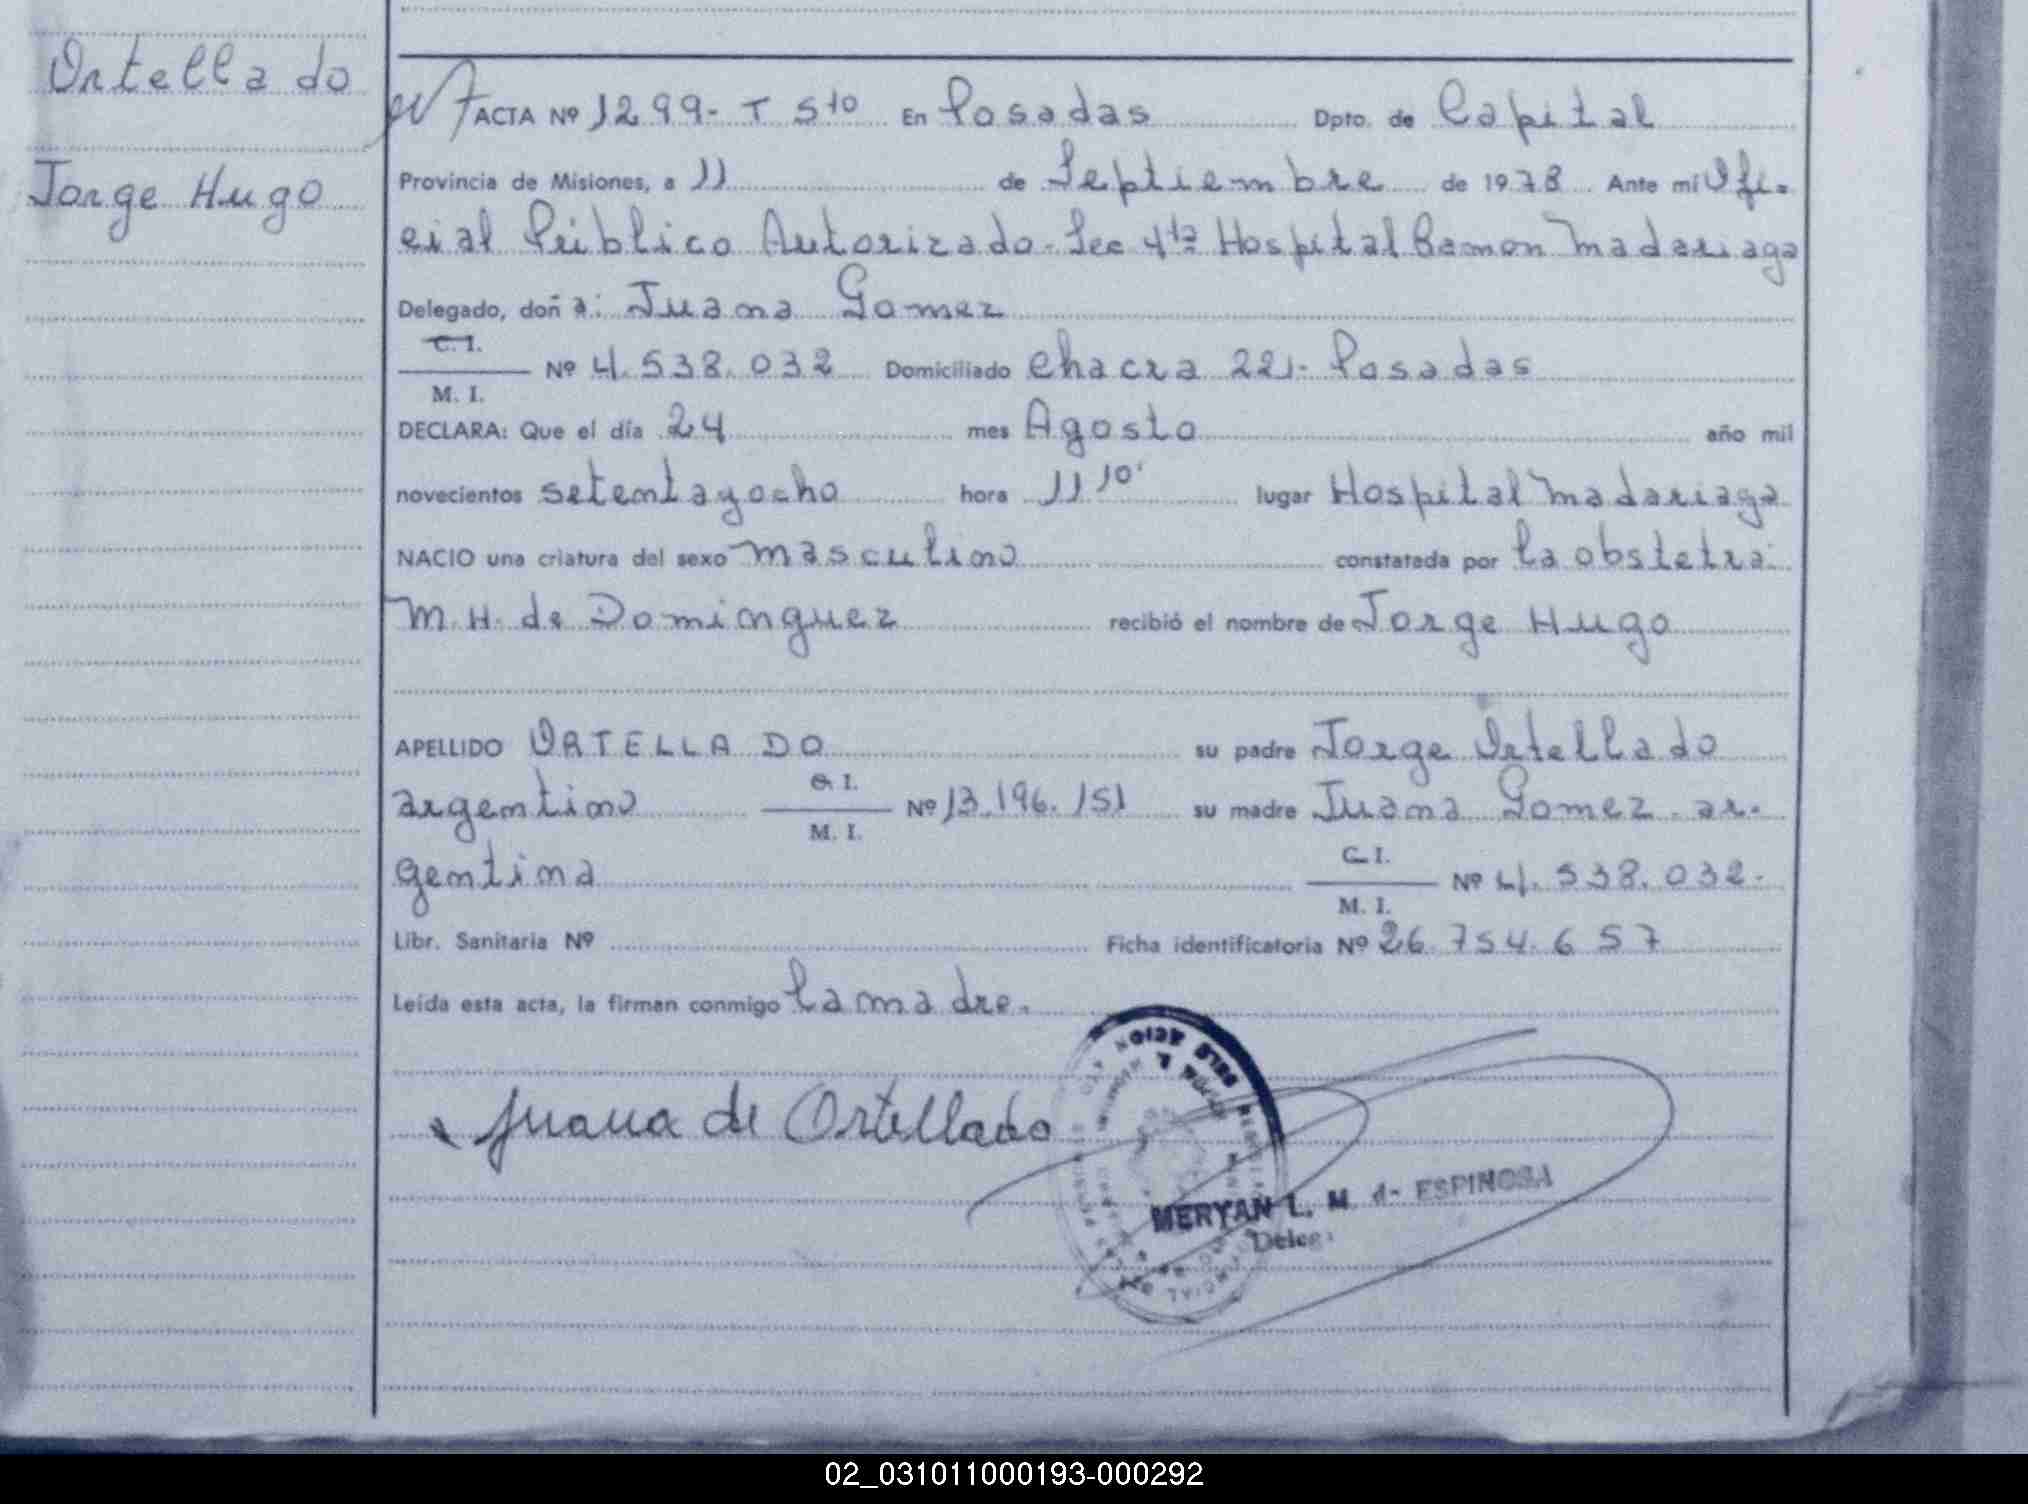 Ortellado
Jorge Hugo
ACTA Nº 1299- T 5to En Posadas Dpto. de Capital
Provincia de Misiones, a 11 de Septiembre de 1978 Ante mí Ofi-
cial Público Autorizado. Sec 4ta Hospital Ramon Madariaga
Delegado, doña: Juana Gomez
C. I.
M. I. Nº 4.538.032 Domiciliado Chacra 221- Posadas
DECLARA: Que el día 24 mes Agosto año mil
novecientos setentayocho hora 11 10' lugar Hospital Madariaga
NACIO una criatura del sexo masculino constatada por la obstetra:
M. H. de Dominguez recibió el nombre de Jorge Hugo
APELLIDO ORTELLADO su padre Jorge Ortellado
argentino C. I. M. I. Nº 13.196.151 su madre Juana Gomez ar-
gentina C. I. M. I. Nº 4.538.032-
Libr. Sanitaria Nº Ficha identificatoria Nº 26.754.657
Leída esta acta, la firman conmigo la madre.
Juana de Ortellado
MERYAN L. M. d- ESPINOSA
Deleg
02_031011000193-000292